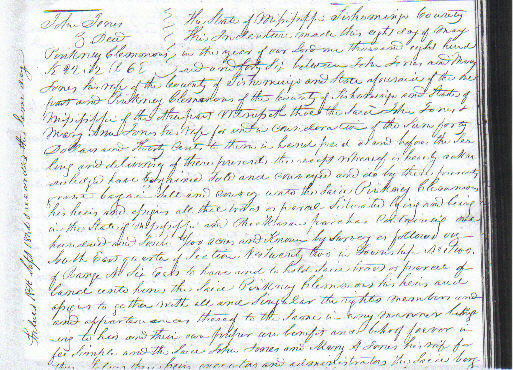 John Jones } The State of Mississippi Tishomingo County
& Deed } This Indenture made this eight day of May
Pinkney Clemmons } in the year of our Lord one thousand eight hund
red and forty Six between John Jones and Mary
Jones his wife of the County of Tishomingo and State aforesaid of the one
part and Pinkney Clemmons of the County of Tishomingo and State of
Mississippi of the other part Witnesseth that the said John Jones &
Mary Ann Jones his wife for and in consideration of the sum forty
Dollars and thirty Cents to them in hand paid at and before the sea
ling and delivery of these presents the receipt whereof is hereby ackn
owledged have bargained Sold and conveyed and do by these presents
grant bargain Sell and convey unto the said Pinkney Clemmons
his heirs and assigns all that tract or parcel Situated lying and being
in the State of Mississippi and
hundred and Sixty acres and Known by Survey as follows
South East quarter of Section No twenty two in Township No two
of Range No Six East to have and to hold said tract or parcel of
land unto him the said Pinkney Clemmons his heirs and
assigns to gether with all and Singular the rights members and
and appurtenances thereof to the Same in any manner belong
ing to his and their own proper use benefit and behoof forever in
fee Simple and the said John Jones and Mary A Jones his wife for
heirs executors and administrators the said
Sept 1846 & recorded the same day